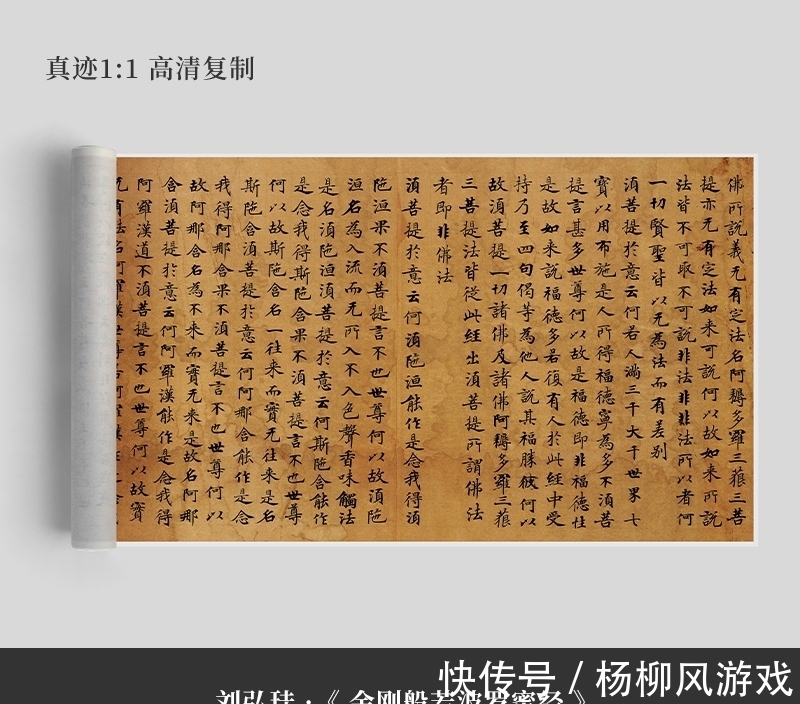 真迹1:1 高清复制
佛所說義无有定法名阿耨多羅三藐三菩
提亦无有定法如来可說何以故如来所說
法皆不可取不可說非法非非法所以者何
一切賢聖皆以无為法而有差別
湏菩提於意云何若人滿三千大千世界七
寶以用布施是人所得福德寧為多不湏菩
提言甚多世尊何以故是福德即非福德性
是故如来說福德多若復有人於此經中受
持乃至四句偈等為他人說其福勝彼何以
故湏菩提一切諸佛及諸佛阿耨多羅三藐
三菩提法皆從此經出湏菩提所謂佛法
者即非佛法
湏菩提於意云何湏陁洹能作是念我得湏
陁洹果不湏菩提言不也世尊何以故湏陁
洹名為入流而无所入不入色聲香味觸法
是名湏陁洹湏菩提於意云何斯陁含能作
是念我得斯陁含果不湏菩提言不也世尊
何以故斯陁含名一往来而實无往来是名
斯陁含湏菩提於意云何阿那含能作是念
我得阿那含果不湏菩提言不也世尊何以
故阿那含名為不来而實无来是故名阿那
含湏菩提於意云何阿羅漢能作是念我得
阿羅漢道不湏菩提言不也世尊何以故實
快传号 / 杨柳风游戏
刘弘珪·《金刚般若波罗蜜经》